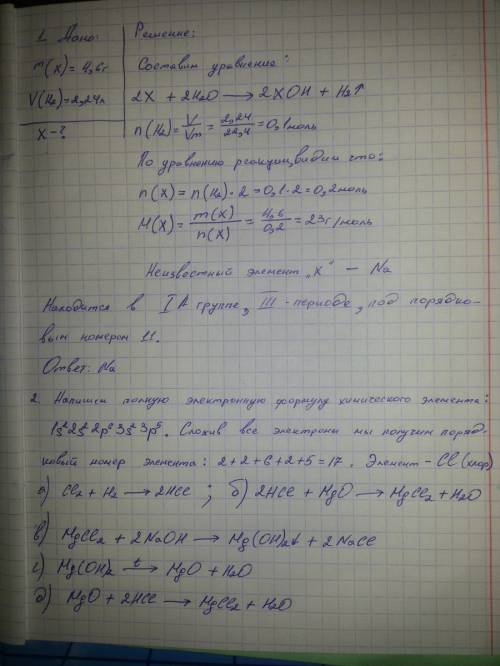 1. Дано: Решение:
m(X) = 4,6г Составим уравнение:
V(H₂) = 2,24л 2X + 2H₂O ⟶ 2XOH + H₂↑
X - ? n(H₂) = V/Vm = 2,24/22,4 = 0,1 моль
По уравнению реакции, видим что:
n(X) = n(H₂) · 2 = 0,1 · 2 = 0,2 моль
M(X) = m(X)/n(X) = 4,6/0,2 = 23 г/моль
Неизвестный элемент „X" — Na
Находится в IA группе, III - периоде, под порядко-
вым номером 11.
Ответ: Na
2. Напишем полную электронную формулу химического элемента:
1s² 2s² 2p⁶ 3s² 3p⁵. Сложив все электроны мы получим поряд-
ковый номер элемента: 2+2+6+2+5 = 17. Элемент - Cl (хлор)
а) Cl₂ + H₂ ⟶ 2HCl ; б) 2HCl + MgO ⟶ MgCl₂ + H₂O
в) MgCl₂ + 2NaOH ⟶ Mg(OH)₂↓ + 2NaCl
г) Mg(OH)₂ t⟶ MgO + H₂O
д) MgO + 2HCl ⟶ MgCl₂ + H₂O